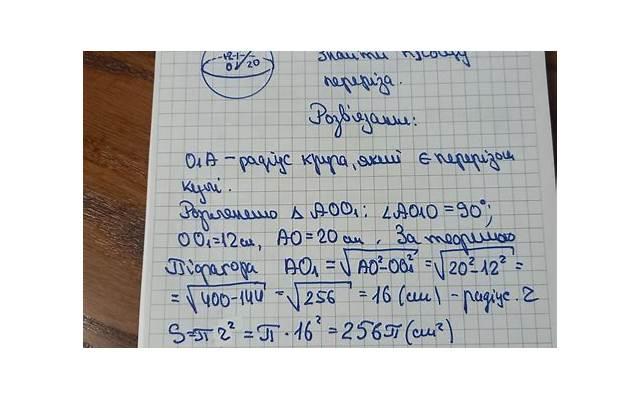 12
O 20
Знайти площу
переріза.
Розв'язання:
O₁A – радіус круга, який є перерізом
кулі.
Розглянемо △ AOO₁: ∠AO₁O = 90°;
OO₁=12см, AO=20 см. За теоремою
Піфагора AO₁ = √AO²-OO₁² = √20²-12² =
= √400-144 = √256 = 16 (см) – радіус. r
S=πr² = π · 16² = 256π (см²)